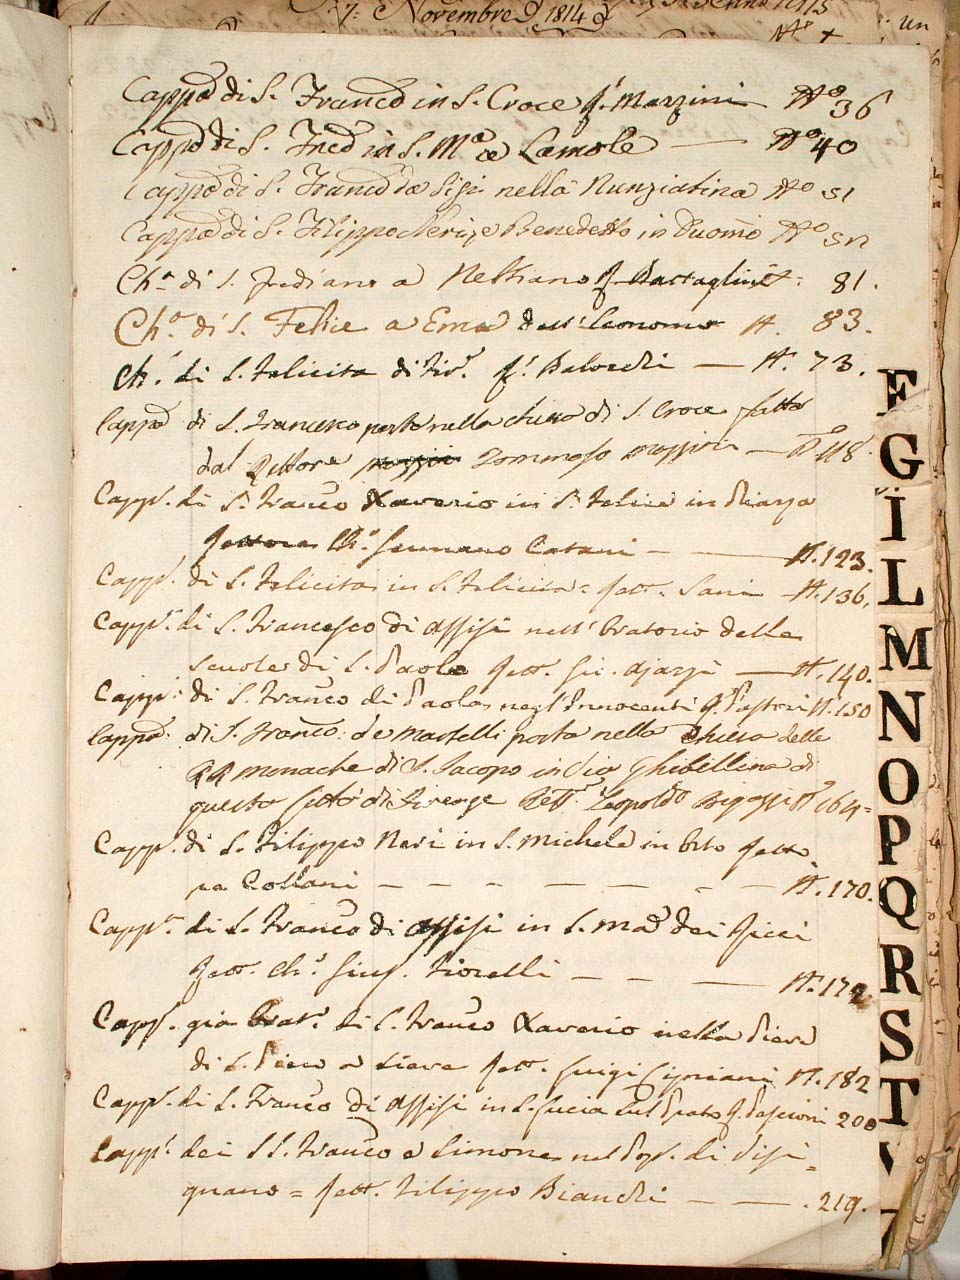 7: Novembre 1814
un
Capp.a di S. Franco in S. Croce R.e Mazzini N.o 36
Capp.a di S. Fred in S. M.a a Lamole — N.o 40
Cappa di S. Franco da Sisi nella Nunziatina N.o 51
Cappa di S. Filippo Neri, e Benedetto in Duomo N.o 52
Ch.a di S. Frediano a Nebbiano R. Battaglini N. 81.
Ch.a di S. Felice a Ema dell'Economo N. 83.
Ch.a di S. Felicita R.e Balocchi — N. 73.
Capp.a di S. Francesco posta nella chiesa di S. Croce fatta
dal Rettore Tommaso Mazzini — N.o 118
Capp.a di S. Franco Xaverio in S. Felice in Piazza
Rettore Ch.o Gennaro Catani — N. 123.
Capp.a di S. Felicita in S. Felicita = Rett. Sani N. 136.
Capp.a di S. Francesco di Assisi nell'Oratorio delle
Scuole di S. Paolo Rett. — N. 140.
Capp.a di S. Franco di Paola negl'Innocenti R. Pastori N. 150
Cappa: di S. Franco: de Martelli posta nella Chiesa delle
RR Monache di S. Jacopo in Via Ghibellina di
questa Città di Firenze Rett.e Leopoldo N.o 164=
Capp.a di S. Filippo Neri in S. Michele in Orto Retto
re Collani — — — — — — — N. 170.
Capp.a di S. Franco di Assisi in S. Ma dei Ricci
Rett. Ch.o Gius. Fiorelli — — — N. 172
Capp.a già Orat.o di S. Franco Xaverio nella Pieve
di S. Piero a Sieve Rett. Luigi Cipriani N. 182
Capp.a di S. Franco di Assisi in S. Lucia sul Prato R. Pascioni 200
Capp.a dei SS. Franco e Simone nel Pop.o di Sisi=
gnano = Rett. Filippo Bianchi — — . 219.
F
G
I
L
M
N
O
P
Q
R
S
T
V
Z